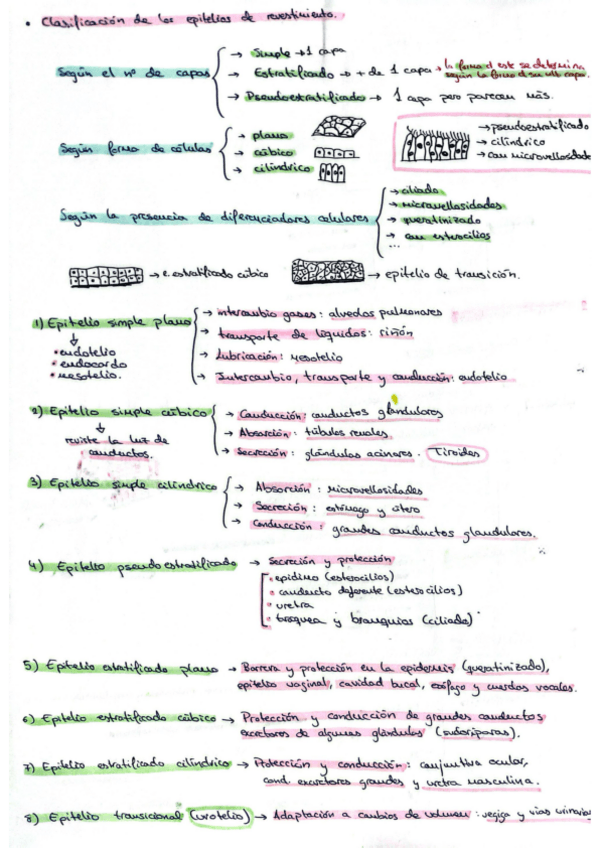 • Clasificación de los epitelios de revestimiento.
Según el nº de capas
→ Simple → 1 capa
→ Estratificado → + de 1 capa → la forma d este se determina
según la forma d su últ capa.
→ Pseudoestratificado → 1 capa pero parecen más.
Según forma de células
→ plano
→ cúbico
→ cilíndrico
→ pseudoestratificado
→ cilíndrico
→ con microvellosidade
Según la presencia de diferenciadores celulares
→ ciliado
→ microvellosidades
→ queratinizado
→ con esterocilios
...
→ e. estratificado cúbico
→ epitelio de transición.
1) Epitelio simple plano
• endotelio
• endocardo
• mesotelio.
→ intercambio gases: alveolos pulmonares
→ transporte de líquidos: riñón
→ Lubricación: Mesotelio
→ Intercambio, transporte y conducción: endotelio
2) Epitelio simple cúbico
reviste la luz de
conductos.
→ Conducción: conductos glandulares
→ Absorción: túbulos renales
→ Secreción: glándulas acinares. Tiroides
3) Epitelio simple cilíndrico
→ Absorción: microvellosidades
→ Secreción: estómago y útero
→ Conducción: grandes conductos glandulares.
4) Epitelio pseudoestratificado → Secreción y protección
• epidimo (esterocilios)
• conducto deferente (esterocilios)
• uretra
• tráquea y branquias (ciliado)
5) Epitelio estratificado plano → Barrera y protección en la epidermis (queratinizado),
epitelio vaginal, cavidad bucal, esófago y cuerdas vocales.
6) Epitelio estratificado cúbico → Protección y conducción de grandes conductos
excretores de algunas glándulas (sudoríparas).
7) Epitelio estratificado cilíndrico → Protección y conducción: conjuntiva ocular,
cond. excretores grandes y uretra masculina.
8) Epitelio transicional (urotelio) → Adaptación a cambios de volumen: vejiga y vías urinarias